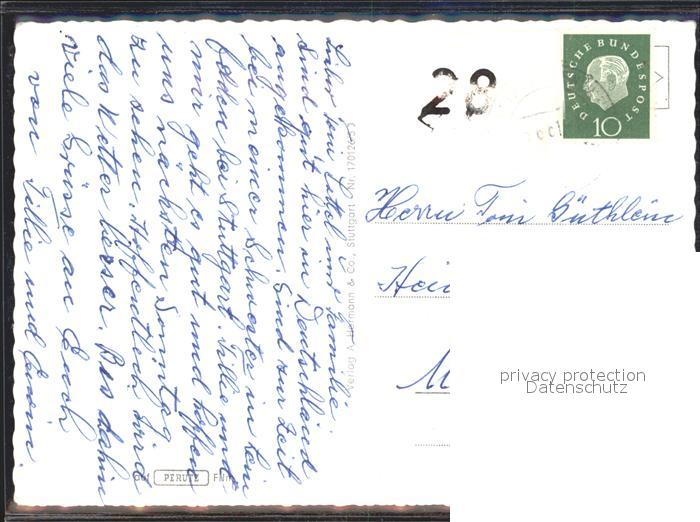 Lieber Toni Gittel und Familie.
Sind gut hier in Deutschland
angekommen. Sind zur Zeit
bei meiner Schwester in
bei Stuttgart. Tillie und
mir geht es gut und hoffen
uns nächsten Sonntag
zu sehen. Hoffentlich wird
das Wetter besser. Bis dahin
viele Grüsse an Euch
von Tillie und Erwin.
Verlag A. & Co., Stuttgart - Nr. 1701
PERUTZ
28
DEUTSCHE BUNDESPOST
10
Herrn Toni Güthlein
Hei
M
privacy protection
Datenschutz